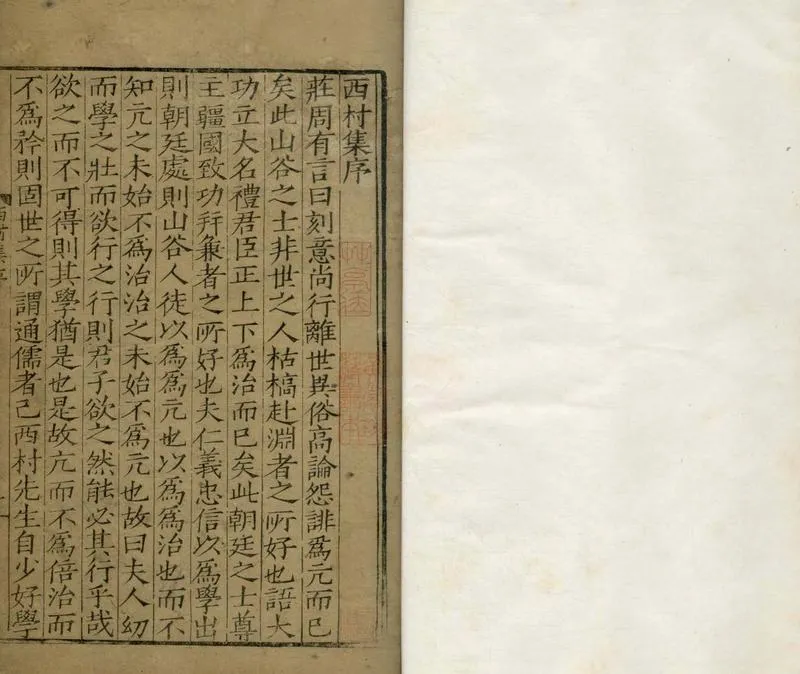 西村集序
莊周有言曰刻意尚行離世異俗高論怨誹為亢而已
矣此山谷之士非世之人枯槁赴淵者之所好也語大
功立大名禮君臣正上下為治而已矣此朝廷之士尊
主疆國致功并兼者之所好也夫仁義忠信以為學出
則朝廷處則山谷人徒以為為元也以為為治也而不
知元之未始不為治治之未始不為元也故曰夫人幼
而學之壯而欲行之行則君子欲之然能必其行乎哉
欲之而不可得則其學猶是也是故亢而不為倍治而
不為矜則固世之所謂通儒者已西村先生自少好學
西村集序